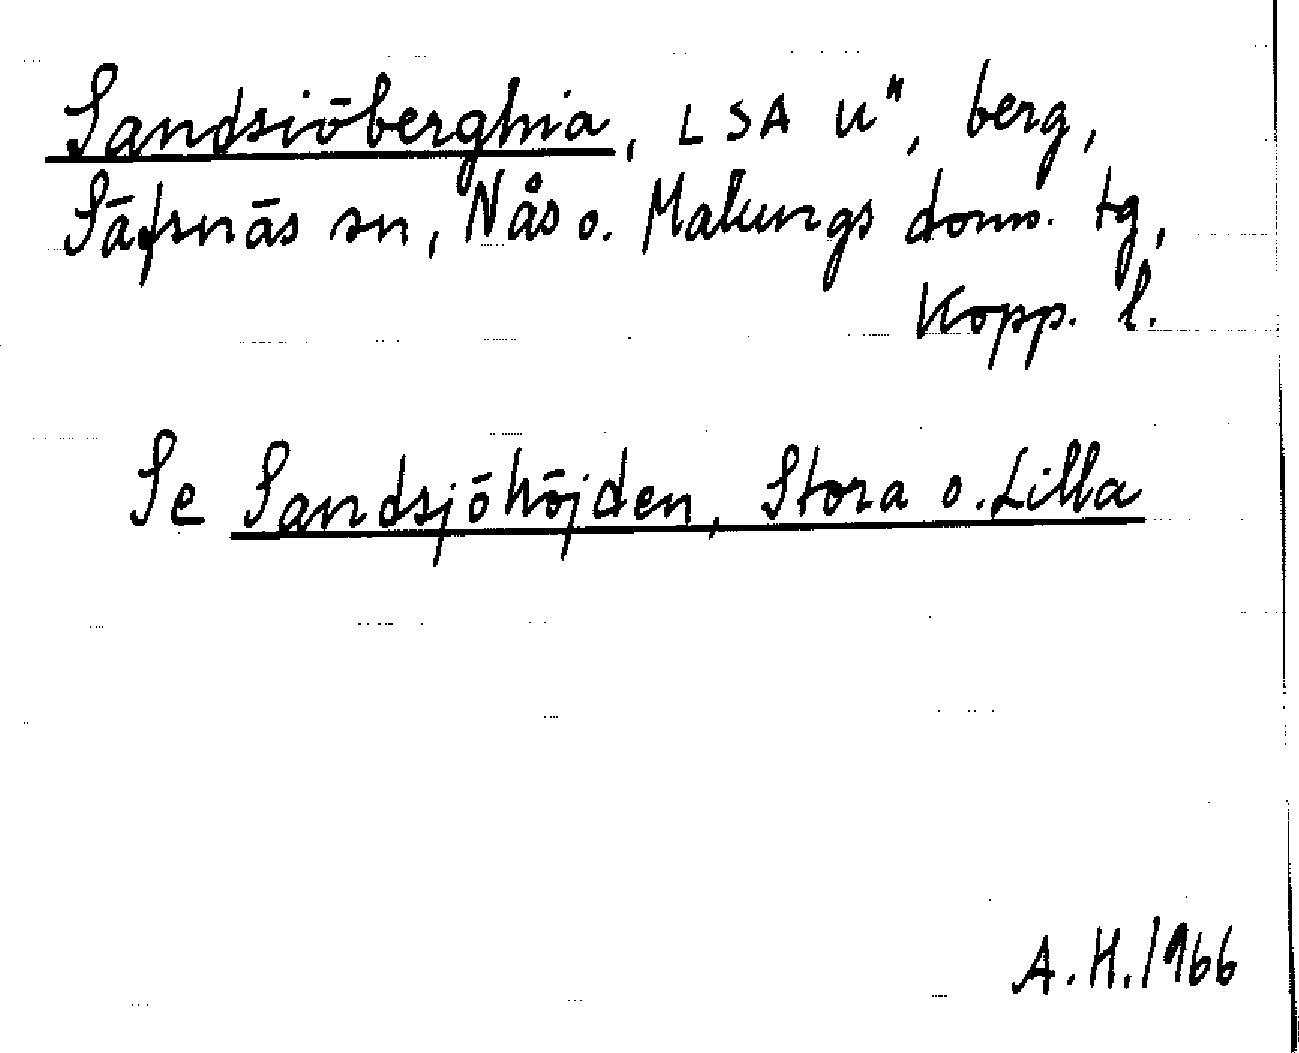 Sandsiöberghia, LSA U", berg,
Säfsnäs sn, Nås o. Malungs doms. tg,
Kopp. l.
Se Sandsjöhöjden, Stora o. Lilla
A.H. 1966